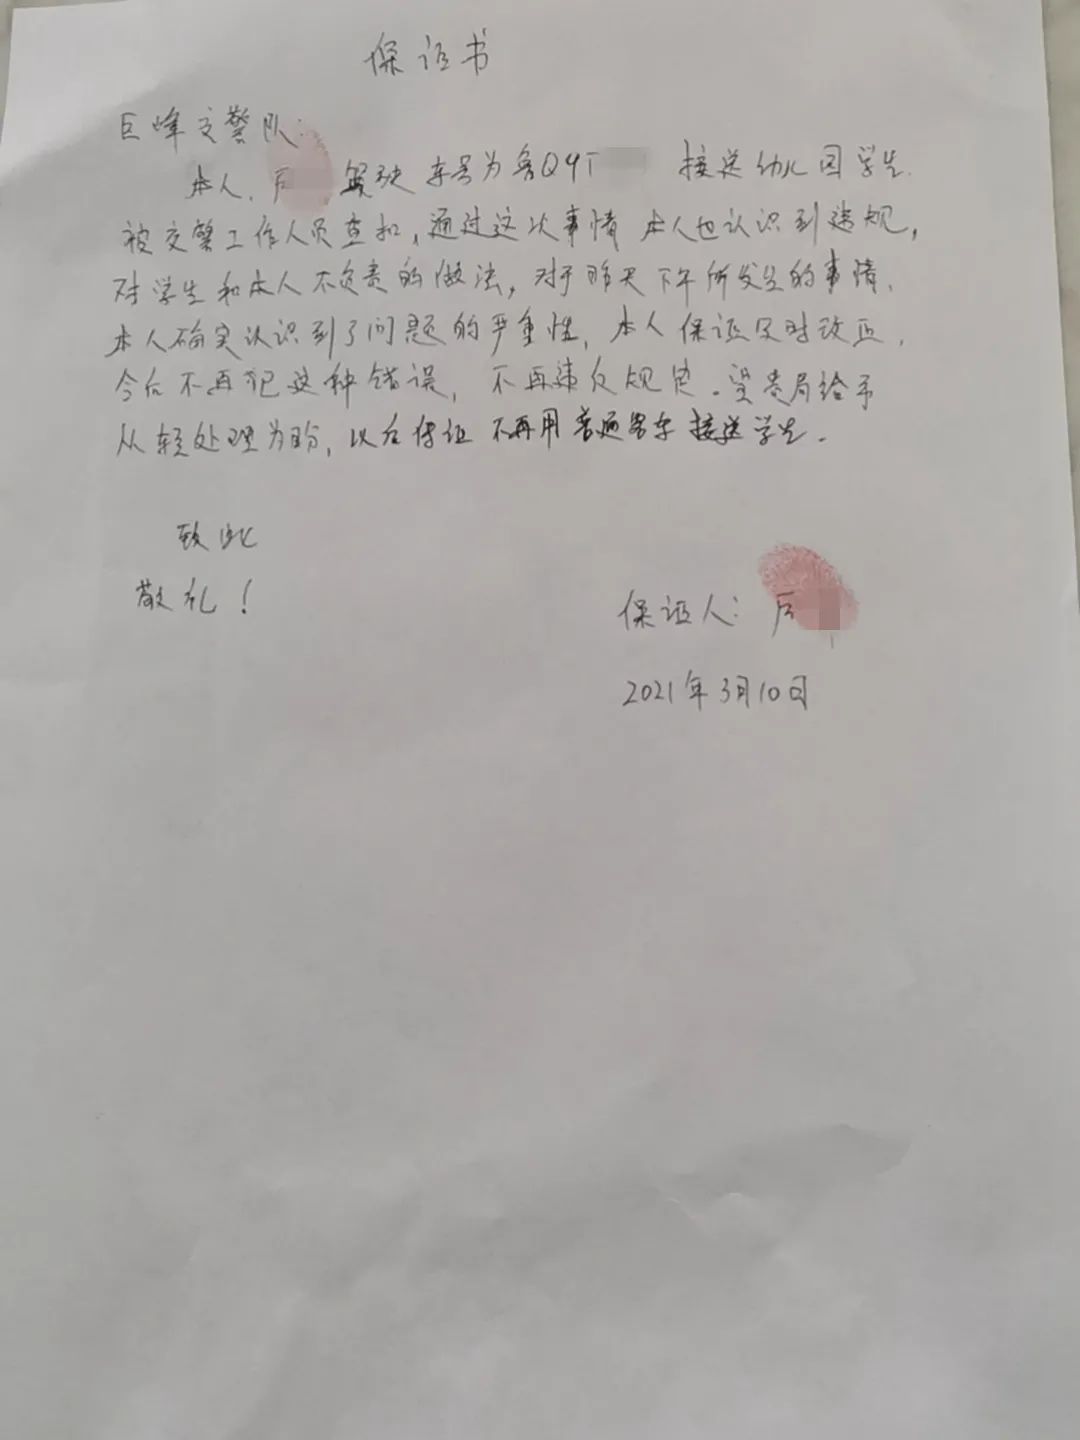 保证书
巨峰交警队:
本人,驾驶车号为鲁Q9T 接送幼儿园学生.
被交警工作人员查扣,通过这次事情 本人也认识到违规,
对学生和本人不负责的做法,对于昨天下午所发生的事情.
本人确实认识到了问题的严重性,本人保证及时改正.
今后不再犯这种错误,不再违反规定.望贵局给予
从轻处理为盼,以后保证不再用普通客车接送学生.
致此
敬礼!
保证人:
2021年3月10日